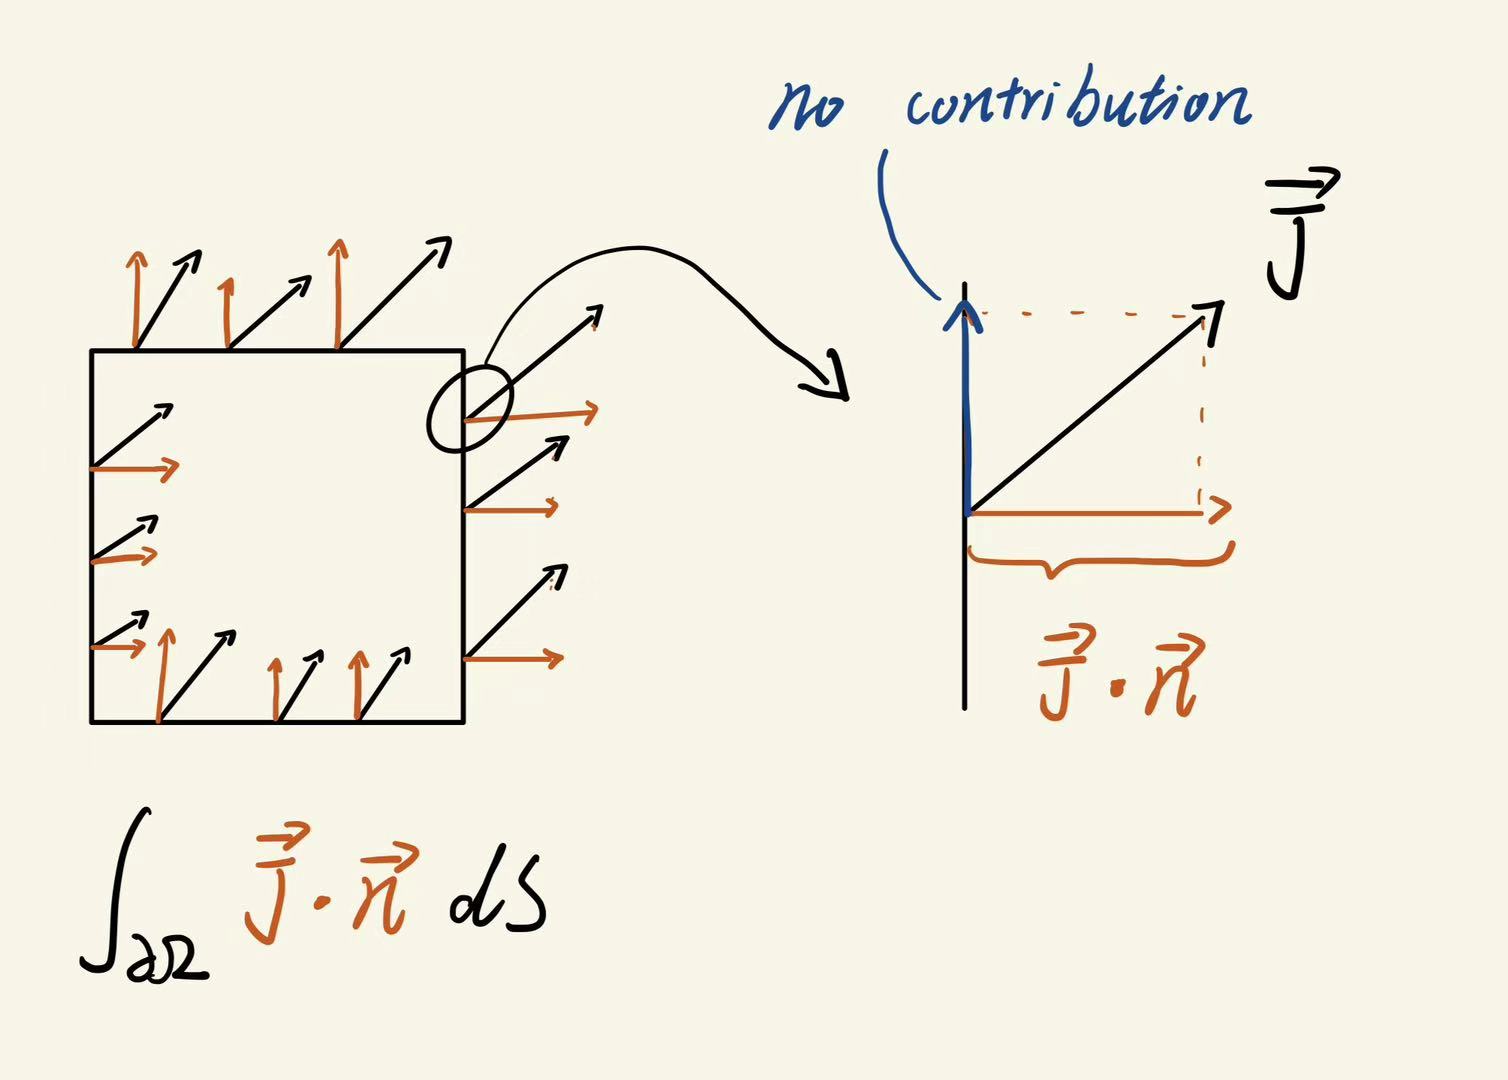 no contribution
$\vec{J}$
$\vec{J} \cdot \vec{n}$
$\int_{\partial\Omega} \vec{J} \cdot \vec{n} \, dS$